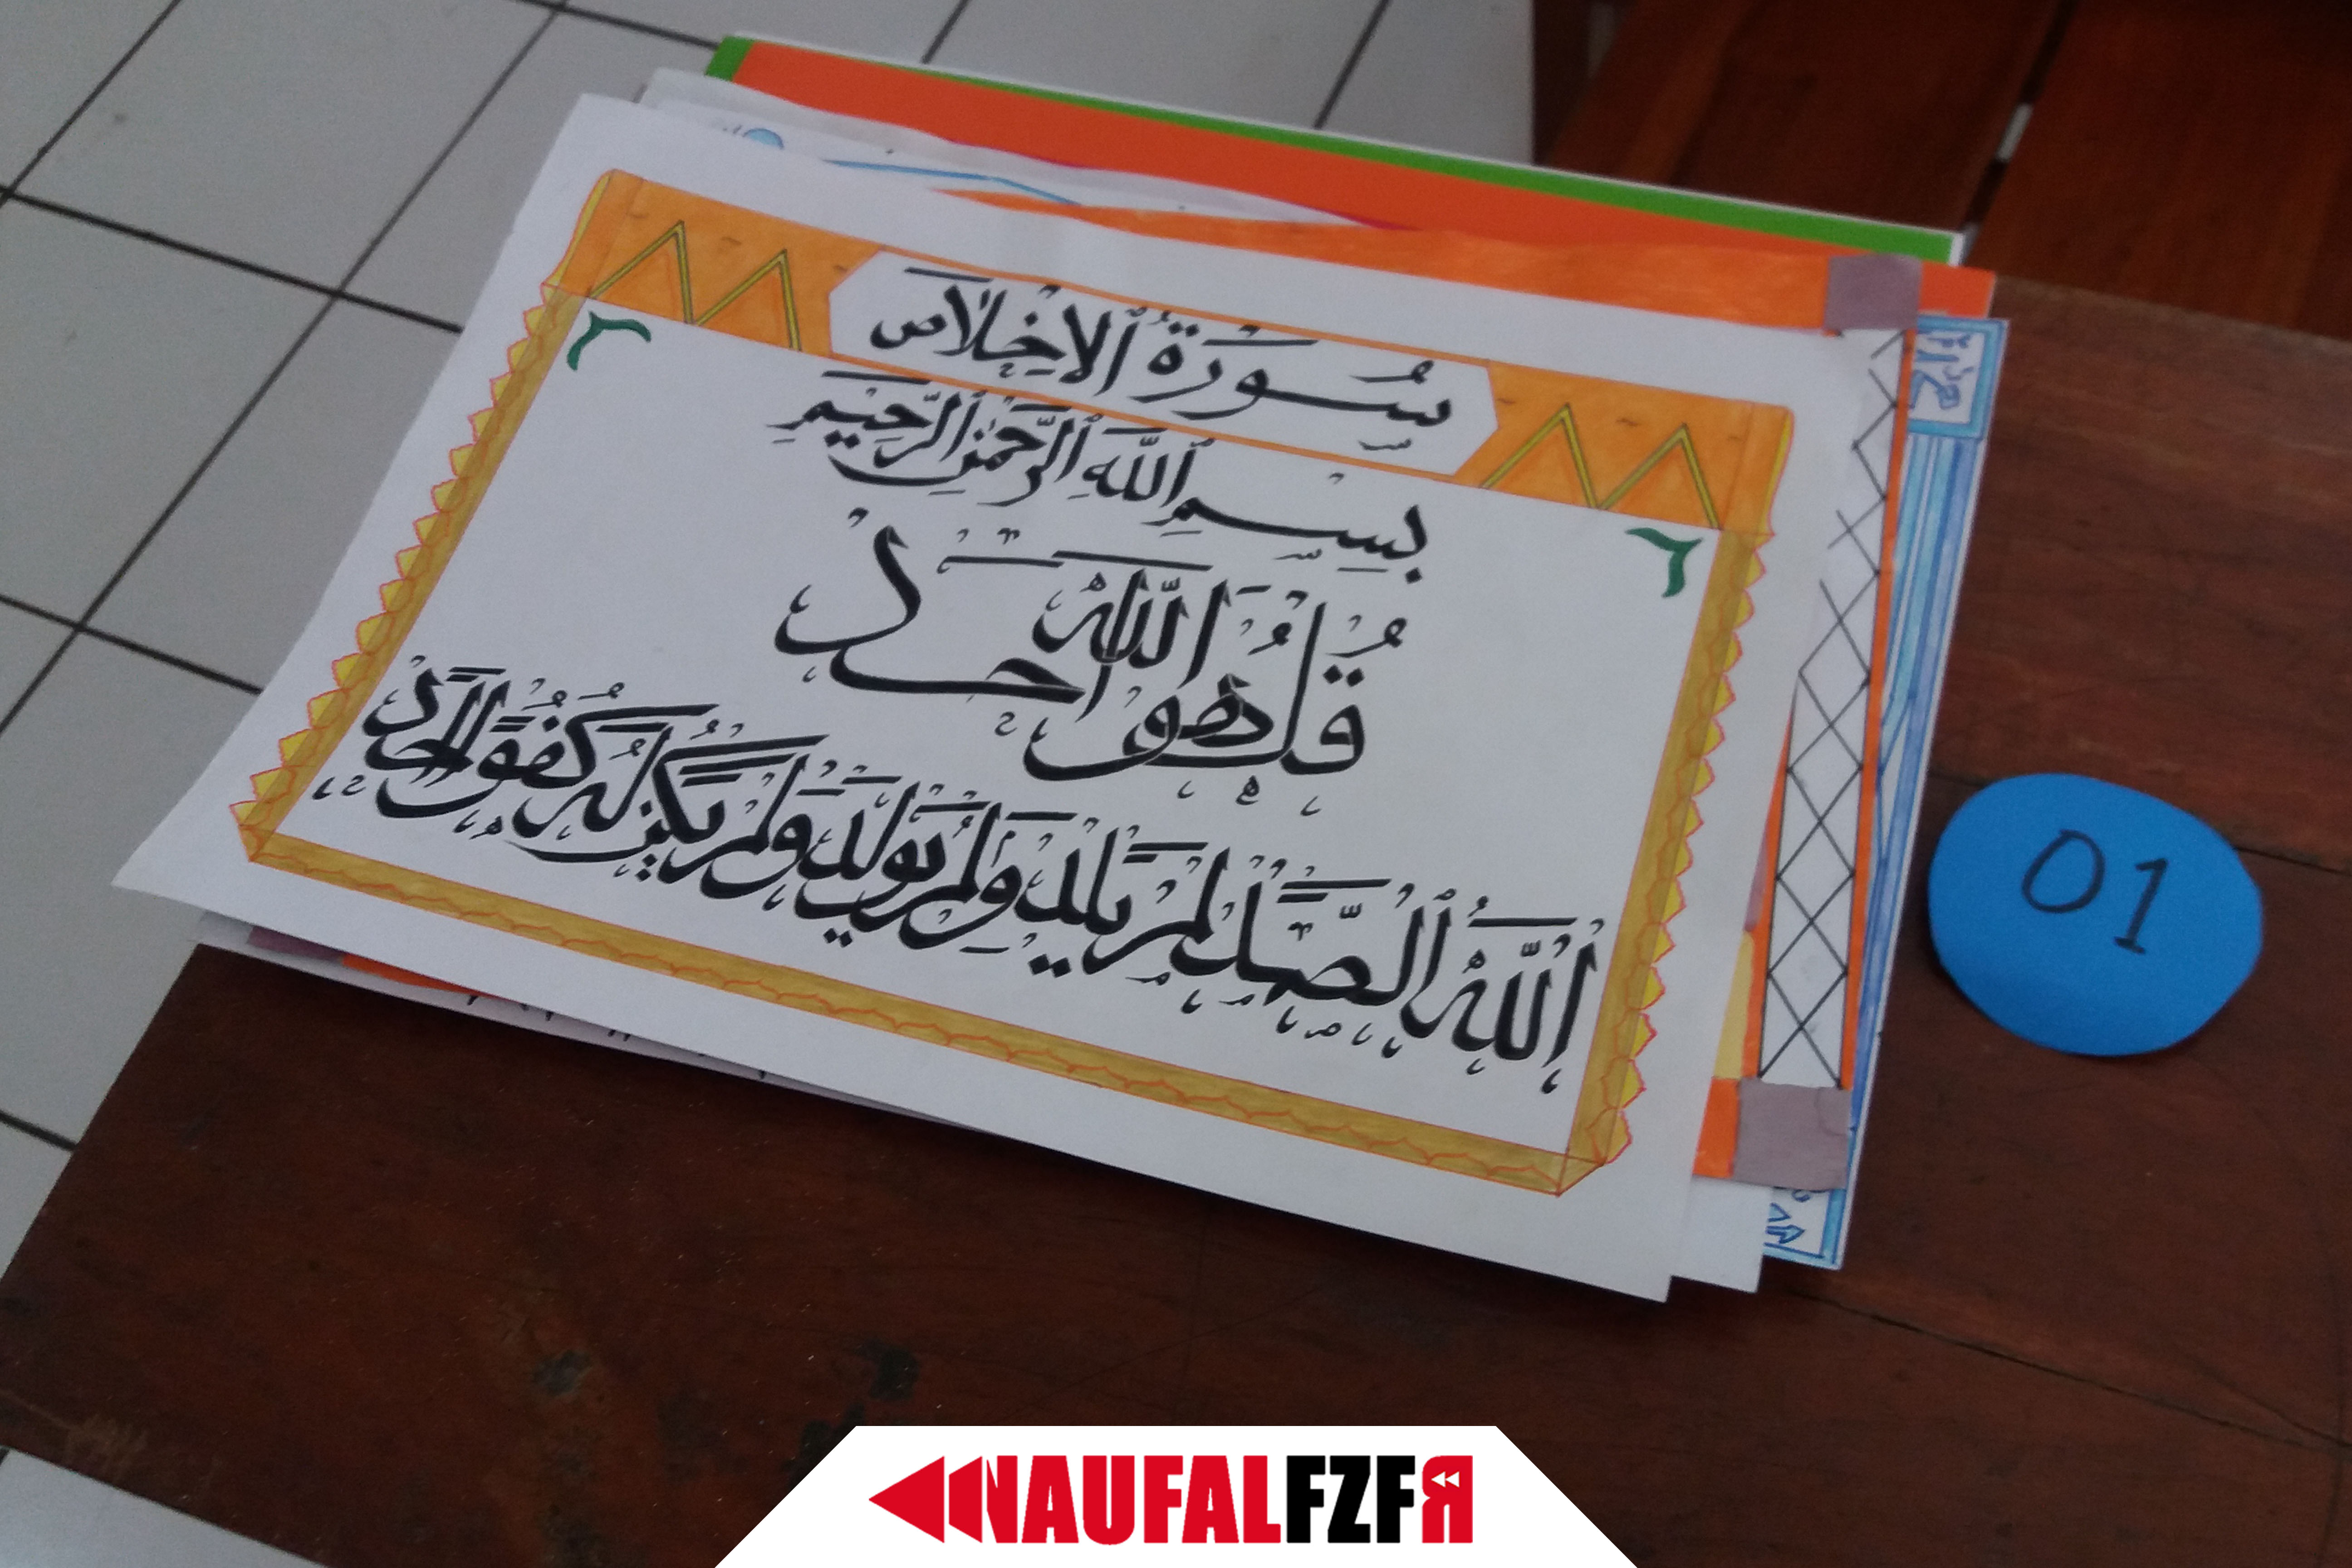 سُورَةُ ٱلْإِخْلَاصِ
بِسْمِ ٱللَّهِ ٱلرَّحْمَٰنِ ٱلرَّحِيمِ
قُلْ هُوَ ٱللَّهُ أَحَدٌ
ٱللَّهُ ٱلصَّمَدُ لَمْ يَلِدْ وَلَمْ يُولَدْ وَلَمْ يَكُن لَّهُ كُفُوًا أَحَدٌ
01
NAUFALFZFR